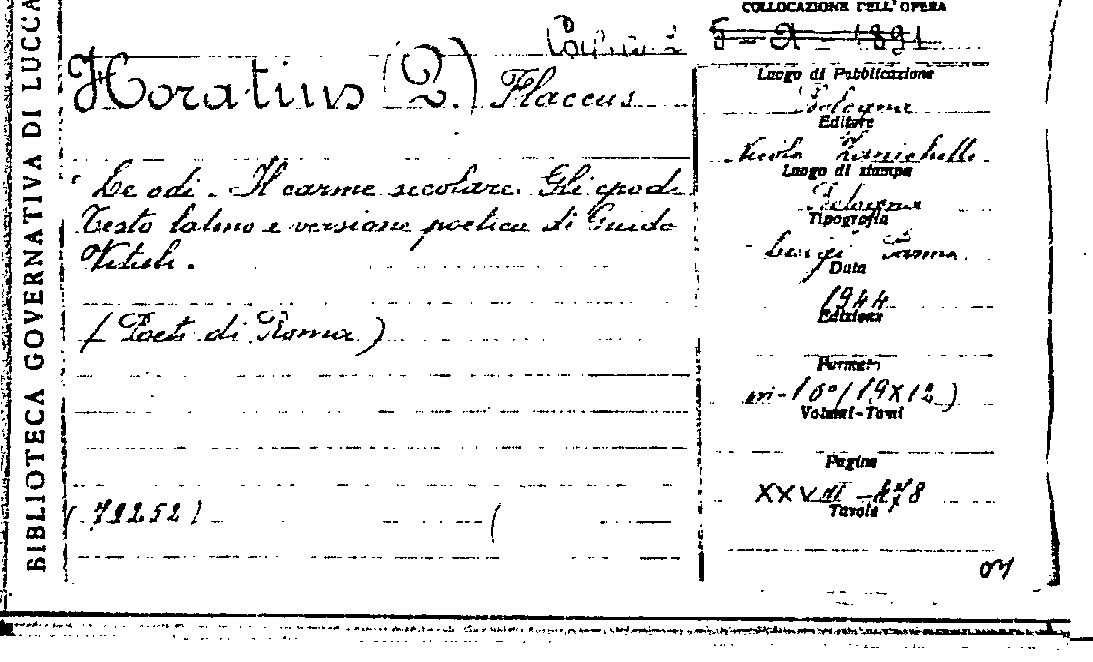 BIBLIOTECA GOVERNATIVA DI LUCCA
COLLOCAZIONE DELL'OPERA
5 - A - 1891
Horatius (Q.) Flaccus
Le odi. Il carme secolare. Gli epodi
Testo latino e versione poetica di Guido
Vitali.
(Poeti di Roma)
(79252)
(
Luogo di Pubblicazione
Bologna
Editore
Nicola Zanichelli
Luogo di stampa
Bologna
Tipografia
Luigi Parma
Data
1944
Edizione
Formato
in-16° (19X12)
Volumi-Tomi
Pagine
XXVIII - 478
Tavole